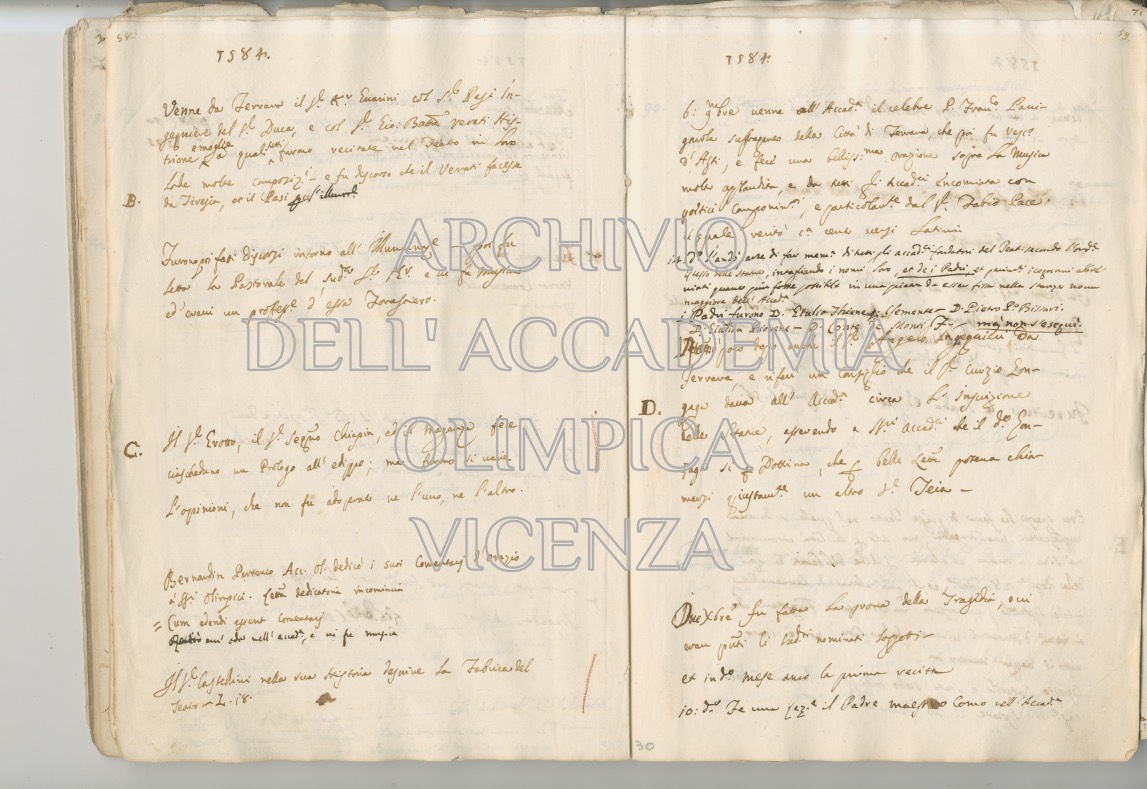 58.
1584.
Venne da Ferrara il Sr. Kr. Guarini col Sr. Pasi In-
gegniere del Sr. Duca, e col Sr. Gio: Batta Verati His-
e moglie
trione a quali tutti furono recitate nel Teatro in loro
lode molte composizi. e fu discorso che il Verati facesse
B.
da Tiresia, et il Pasi
Furono poi fati discorsi intorno all' e poi fu
letta la Pastorale del Sudo. Sr. Kr. e vi fu musica
ed eravi un d essa Forastiero.
C.
Il Sr. Groto, il Sr. Chiapin, ed il Maganza fece
ciascheduno un Prologo all' edippo, ma furono si varie
l'opinioni, che non fu adoperato ne l'uno, ne l'altro.
Bernardin Partenio Acc. Ol. dedicò i suoi Comentarj d'Orazio
à SSri. Olimpici. Letta dedicatoria incomincia
= Cum edendi essent Comentarj
nell' Accada, e vi fu musica
Il Sr. Castellini nella sua Historia descrive la Fabrica del
Teatro - L. 18.
59.
1584.
6: 9bre venne all' Accada il celebre P. Franco Pani-
garola suffraganeo della Città di Ferrara, che poi fu Vesco.
d'Asti, e fece una bellissima orazione sopra la Musica
molto applaudita, e da tutti gli Accadci encomiata con
poetici componimti, e particolarte dal Sr. Fabio Pace
il quale recitò
versi Latini
di tutti gli accadci fondatori del
istesso delle statue, intagliando i nomi loro, et de i Padri
quanto più fosse possibile in una pietra da esser fissa nella stanza
maggiore dell' Accada
i Padri furono D. Giulio Thiene Clemente - D. Pietro Bissari.
D. Giulian Piovene - D. Conte Da Monte - ma non s'eseguì.
poco dopo
Ingegnieri Da
D.
Ferrara, e riferì un consiglio che il Sr. Curzio Gon-
zaga dava all' Accada circa l' Inscrizione
delle Statue, essendo a Sri Accadci che il do. Gon-
zaga sì p Dottrina, che p belle Lettre poteva chia-
marsi giustamte un altro Sr.
Due Xbre fu fatta la prova della Tragedia, ivi
eran pnti li sudtti nominati soggetti -
et indo. mese anco la prima recita
10: do. Fe una lezne il Padre maestro Como nell' Accada
30
ARCHIVIO
DELL' ACCADEMIA
OLIMPICA
VICENZA